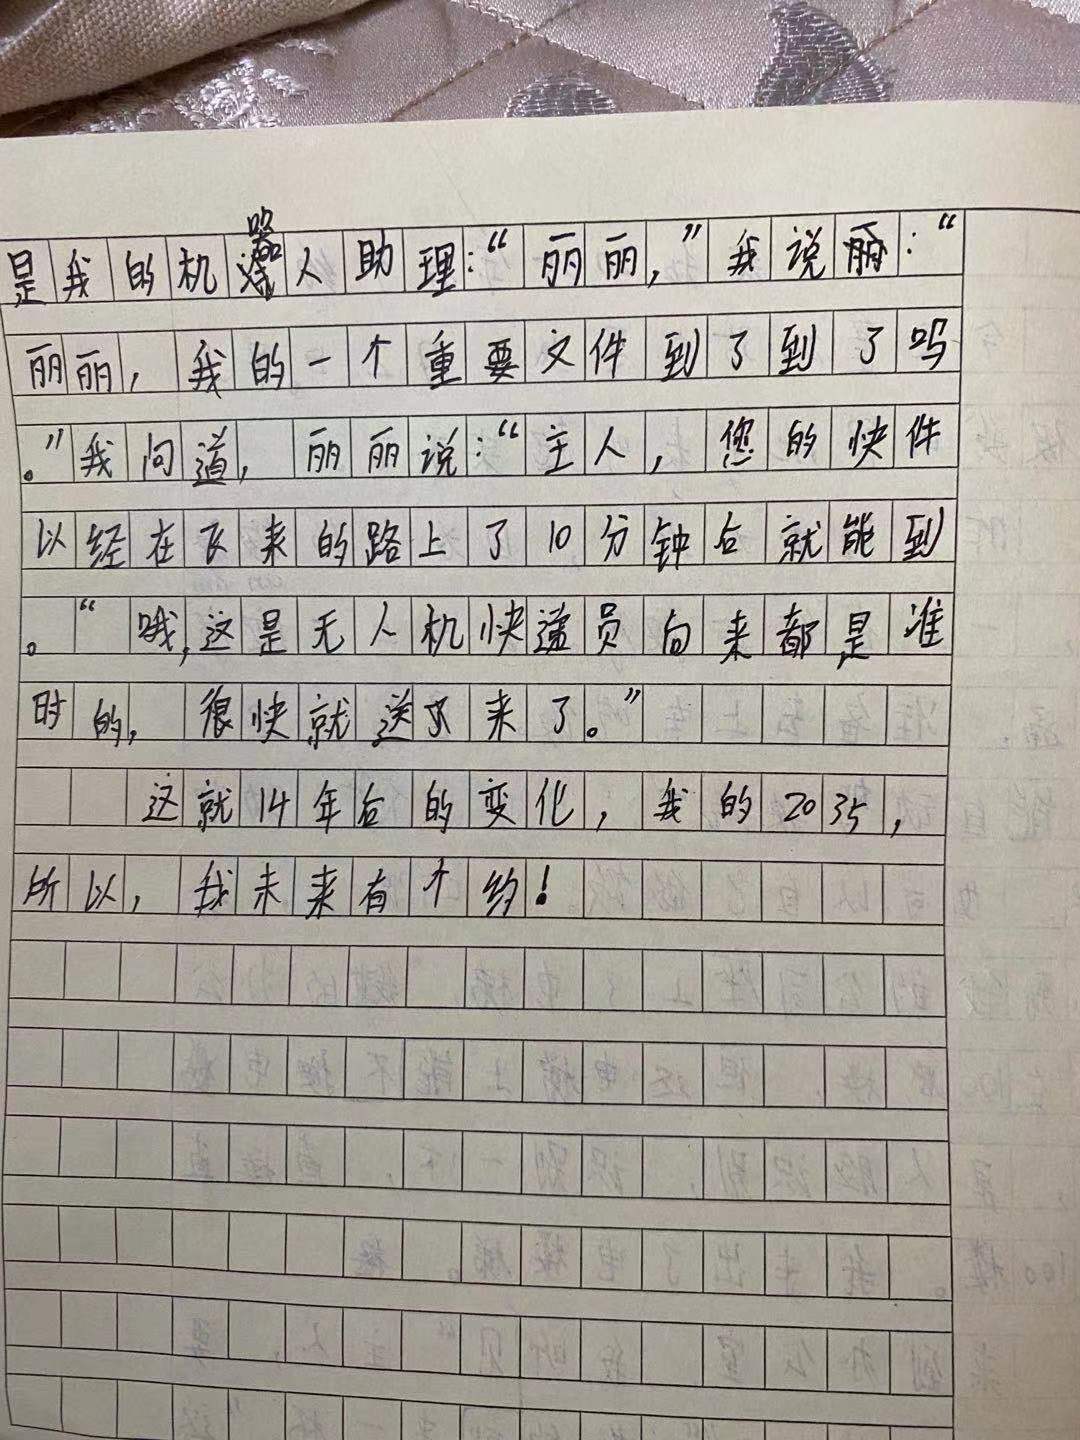 是我的机器人助理:“丽丽,”我说丽:“
丽丽,我的一个重要文件到了到了吗
。”我问道,丽丽说:“主人,您的快件
以经在飞来的路上了10分钟后就能到
。“哦,这是无人机快递员向来都是准
时的,很快就送来了。”
这就14年后的变化,我的2035,
所以,我未来有个约!